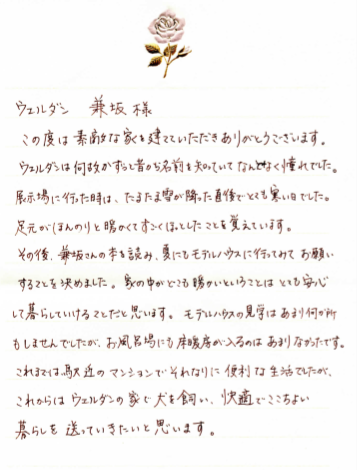 ウェルダン 兼坂様
この度は素敵な家を建てていただきありがとうございます。
ウェルダンは何故かずっと昔から名前を知っていてなんとなく憧れでした。
展示場に行った時は、たまたま雪が降った直後でとても寒い日でした。
足元がほんのりと暖かくてすごくほっとしたことを覚えています。
その後、兼坂さんの本を読み、夏にもモデルハウスに行ってみてお願い
することを決めました。家の中がどこも暖かいということはとても安心
して暮らしていけることだと思います。モデルハウスの見学はあまり何か所
もしませんでしたが、お風呂場にも床暖房が入るのはあまりなかったです。
これまでは駅近のマンションでそれなりに便利な生活でしたが、
これからはウェルダンの家で犬を飼い、快適でここちよい
暮らしを送っていきたいと思います。